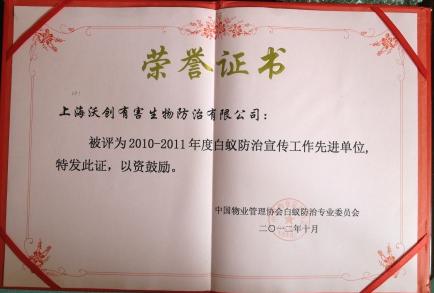 荣誉证书
上海沃创有害生物防治有限公司：
被评为2010-2011年度白蚁防治宣传工作先进单位,
特发此证，以资鼓励。
中国物业管理协会白蚁防治专业委员会
二〇一二年十月